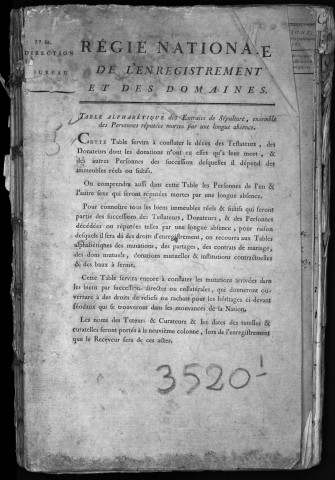 DIRECTION
BUREAU
RÉGIE NATIONALE
DE L'ENREGISTREMENT
ET DES DOMAINES.
TABLE ALPHABÉTIQUE des Extraits de Sépulture, ensemble
des Personnes réputées mortes par une longue absence.
CETTE Table servira à constater le décès des Testateurs, des
Donateurs dont les donations n'ont eu effet qu'à leur mort, &
des autres Personnes des succession desquelles il dépend des
immeubles réels ou fictifs.
On comprendra aussi dans cette Table les Personnes de l'un &
l'autre sexe qui seront réputées mortes par une longue absence.
Pour connoître tous les biens immeubles réels & fictifs qui seront
partie des successions des Testateurs, Donateurs, & des Personnes
décédées ou réputées telles par une longue absence, pour raison
desquels il sera dû des droits d'enregistrement, on recourra aux Tables
alphabétiques des mutations, des partages, des contrats de mariage,
des dons mutuels, donations mutuelles & institutions contractuelles
& des baux à ferme.
Cette Table servira encore à constater les mutations arrivées dans
les biens par succession directe ou collatérale, qui donneront ou-
verture à des droits de relief ou rachat pour les héritages ci-devant
féodaux qui se trouveront dans les mouvances de la Nation.
Les noms des Tuteurs & Curateurs & les dates des tutelles &
curatelles seront portés à la neuvième colonne, lors de l'enregistrement
que le Receveur fera de ces actes.
3520 1